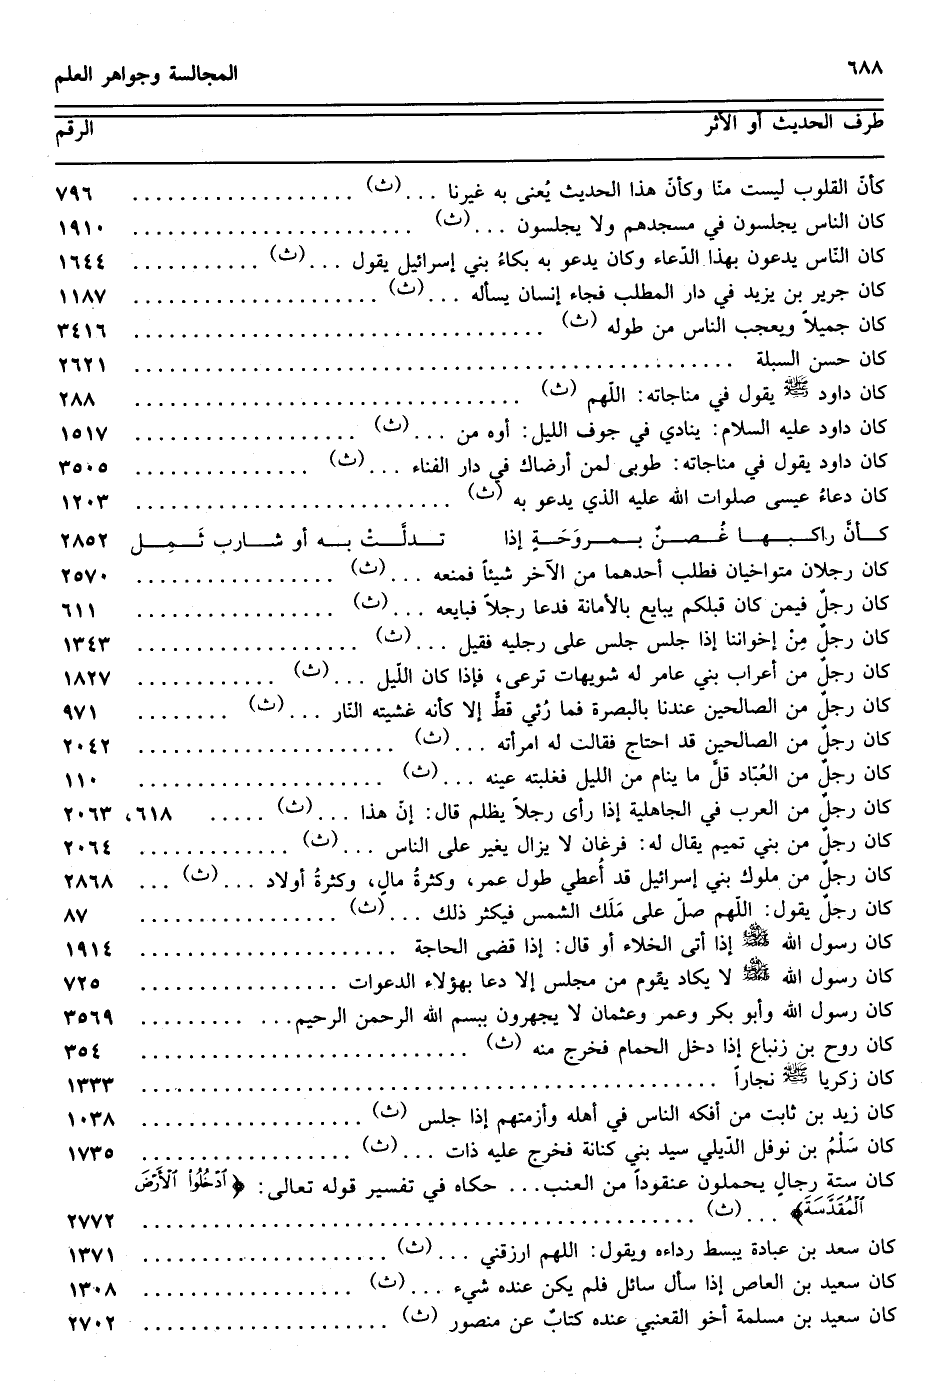 ٦٨٨ المجالسة وجواهر العلم
طرف الحديث أو الأثر الرقم
كأنّ القلوب ليست منّا وكأنّ هذا الحديث يُعنى به غيرنا ... (ث) .................... ٧٩٦
كان الناس يجلسون في مسجدهم ولا يجلسون ... (ث) ........................ ١٩١٠
كان النّاس يدعون بهذا الدّعاء وكان يدعو به بكاءُ بني إسرائيل يقول ... (ث) ............ ١٦٤٤
كان جرير بن يزيد في دار المطلب فجاء إنسان يسأله ... (ث) ...................... ١١٨٧
كان جميلاً ويعجب الناس من طوله (ث) .................................... ٣٤١٦
كان حسن السبلة .................................................... ٢٦٢١
كان داود ﷺ يقول في مناجاته: اللّهم (ث) ................................. ٢٨٨
كان داود عليه السلام: ينادي في جوف الليل: أوه من ... (ث) .................... ١٥١٧
كان داود يقول في مناجاته: طوبى لمن أرضاك في دار الفناء ... (ث) ................ ٣٥٠٥
كان دعاءُ عيسى صلوات الله عليه الذي يدعو به (ث) ............................ ١٢٠٣
كـأنَّ راكـبـهـا غُـصـنٌ بـمـروَحَـةٍ إذا تـدلَّـتْ بـه أو شـارب ثَـمِـل ٢٨٥٢
كان رجلان متواخيان فطلب أحدهما من الآخر شيئاً فمنعه ... (ث) .................. ٢٥٧٠
كان رجلٌ فيمن كان قبلكم يبايع بالأمانة فدعا رجلاً فبايعه ... (ث) .................. ٦١١
كان رجلٌ مِنْ إخواننا إذا جلس جلس على رجليه فقيل ... (ث) .................... ١٣٤٣
كان رجلٌ من أعراب بني عامر له شويهات ترعى، فإذا كان اللّيل ... (ث) ............ ١٨٢٧
كان رجلٌ من الصالحين عندنا بالبصرة فما رُئي قطُّ إلا كأنه غشيته النّار ... (ث) ........ ٩٧١
كان رجلٌ من الصالحين قد احتاج فقالت له امرأته ... (ث) ........................ ٢٠٤٢
كان رجلٌ من العُبّاد قلَّ ما ينام من الليل فغلبته عينه ... (ث) ...................... ١١٠
كان رجلٌ من العرب في الجاهلية إذا رأى رجلاً يظلم قال: إنّ هذا ... (ث) ..... ٦١٨، ٢٠٦٣
كان رجلٌ من بني تميم يقال له: فرغان لا يزال يغير على الناس ... (ث) .............. ٢٠٦٤
كان رجلٌ من ملوك بني إسرائيل قد أُعطي طول عمر، وكثرةُ مالٍ، وكثرةُ أولاد ... (ث) ... ٢٨٦٨
كان رجلٌ يقول: اللّهم صلّ على مَلَك الشمس فيكثر ذلك ... (ث) .................. ٨٧
كان رسول الله ﷺ إذا أتى الخلاء أو قال: إذا قضى الحاجة ...................... ١٩١٤
كان رسول الله ﷺ لا يكاد يقوم من مجلس إلا دعا بهؤلاء الدعوات ................ ٧٢٥
كان رسول الله وأبو بكر وعمر وعثمان لا يجهرون ببسم الله الرحمن الرحيم... ......... ٣٥٦٩
كان روح بن زنباع إذا دخل الحمام فخرج منه (ث) ............................ ٣٥٤
كان زكريا ﷺ نجاراً ................................................ ١٣٣٣
كان زيد بن ثابت من أفكه الناس في أهله وأزمتهم إذا جلس (ث) .................... ١٠٣٨
كان سَلْمُ بن نوفل الدّيلي سيد بني كنانة فخرج عليه ذات ... (ث) .................. ١٧٣٥
كان ستة رجالٍ يحملون عنقوداً من العنب... حكاه في تفسير قوله تعالى: ﴿ٱدْخُلُوا۟ ٱلْأَرْضَ
ٱلْمُقَدَّسَةَ﴾ ... (ث) ................................................ ٢٧٧٢
كان سعد بن عبادة يبسط رداءه ويقول: اللهم ارزقني ... (ث) ...................... ١٣٧١
كان سعيد بن العاص إذا سأل سائل فلم يكن عنده شيء ... (ث) .................. ١٣٠٨
كان سعيد بن مسلمة أخو القعنبي عنده كتابٌ عن منصور (ث) .................... ٢٧٠٢